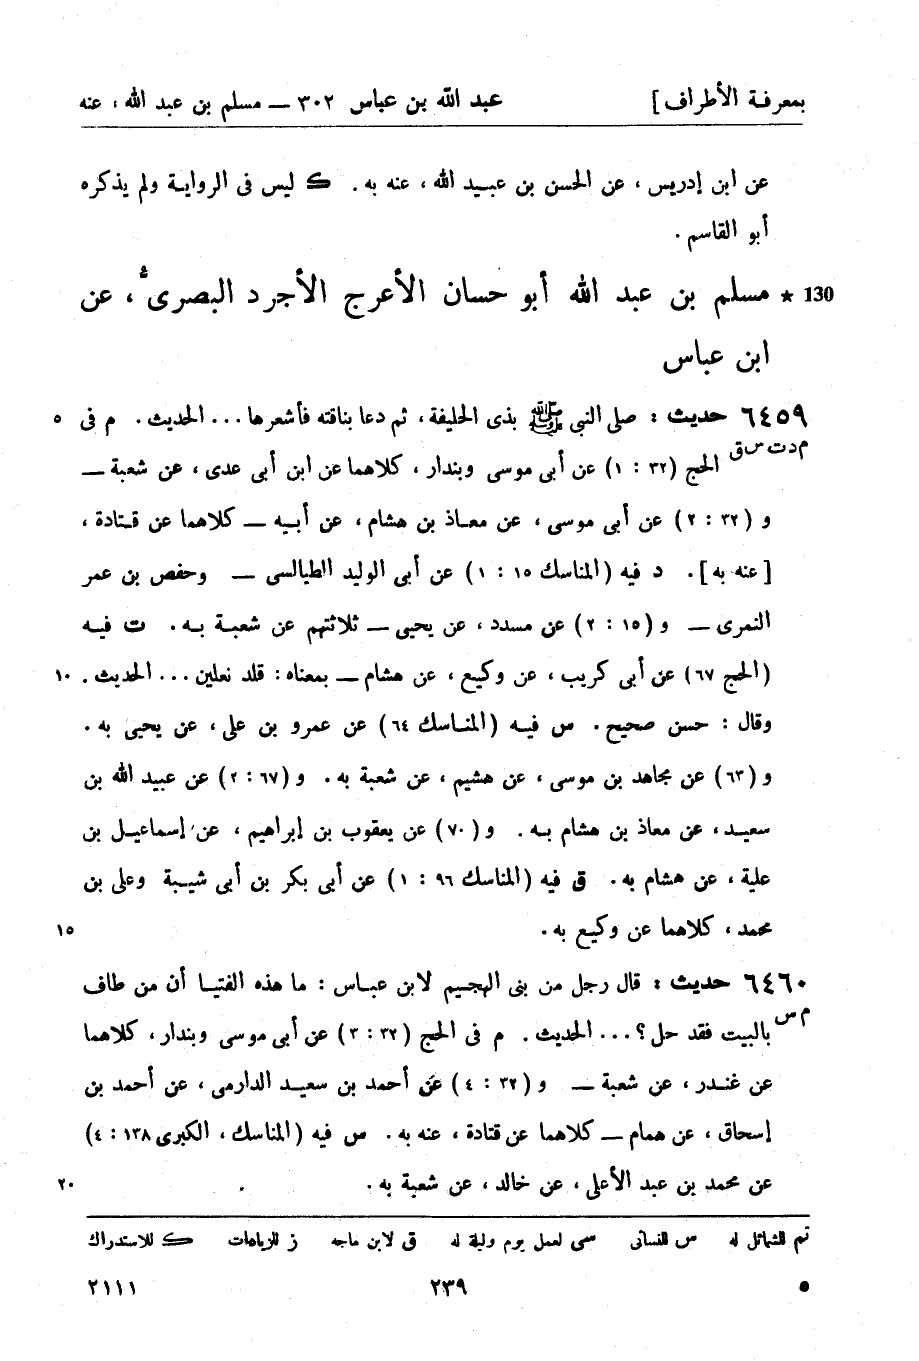 بمعرفة الأطراف] عبد الله بن عباس ٣٠٢ — مسلم بن عبد الله ، عنه
عن ابن إدريس ، عن الحسن بن عبيد الله ، عنه به . ك ليس فى الرواية ولم يذكره
أبو القاسم .
130 ★ مسلم بن عبد الله أبو حسان الأعرج الأجرد البصرى ، عن
ابن عباس
٦٤٥٩ حديث : صلى النبى ﷺ بذى الحليفة ، ثم دعا بناقته فأشعرها ... الحديث . م فى ٥
م د ت س ق الحج (٣٢ : ١) عن أبى موسى وبندار ، كلاهما عن ابن أبى عدى ، عن شعبة —
و (٣٢ : ٢) عن أبى موسى ، عن معاذ بن هشام ، عن أبيه — كلاهما عن قتادة ،
[عنه به] . د فيه (المناسك ١٥ : ١) عن أبى الوليد الطيالسى — وحفص بن عمر
النمرى — و (١٥ : ٢) عن مسدد ، عن يحيى — ثلاثتهم عن شعبة به . ت فيه
(الحج ٦٧) عن أبى كريب ، عن وكيع ، عن هشام — بمعناه : قلد نعلين ... الحديث . ١٠
وقال : حسن صحيح . س فيه (المناسك ٦٤) عن عمرو بن على ، عن يحيى به .
و (٦٣) عن مجاهد بن موسى ، عن هشيم ، عن شعبة به . و (٦٧ : ٢) عن عبيد الله بن
سعيد ، عن معاذ بن هشام به . و (٧٠) عن يعقوب بن إبراهيم ، عن إسماعيل بن
علية ، عن هشام به . ق فيه (المناسك ٩٦ : ١) عن أبى بكر بن أبى شيبة وعلى بن
محمد ، كلاهما عن وكيع به . ١٥
٦٤٦٠ حديث : قال رجل من بنى الهجيم لابن عباس : ما هذه الفتيا أن من طاف
م س بالبيت فقد حل ؟ ... الحديث . م فى الحج (٣٢ : ٣) عن أبى موسى وبندار ، كلاهما
عن غندر ، عن شعبة — و (٣٢ : ٤) عن أحمد بن سعيد الدارمى ، عن أحمد بن
إسحاق ، عن همام — كلاهما عن قتادة ، عنه به . س فيه (المناسك ، الكبرى ١٣٨ : ٤)
عن محمد بن عبد الأعلى ، عن خالد ، عن شعبة به . ٢٠
تم للشمائل له س للنسائى سى لعمل يوم وليلة له ق لابن ماجه ز للزيادات ك للاستدراك
• ٢٣٩ ٢١١١